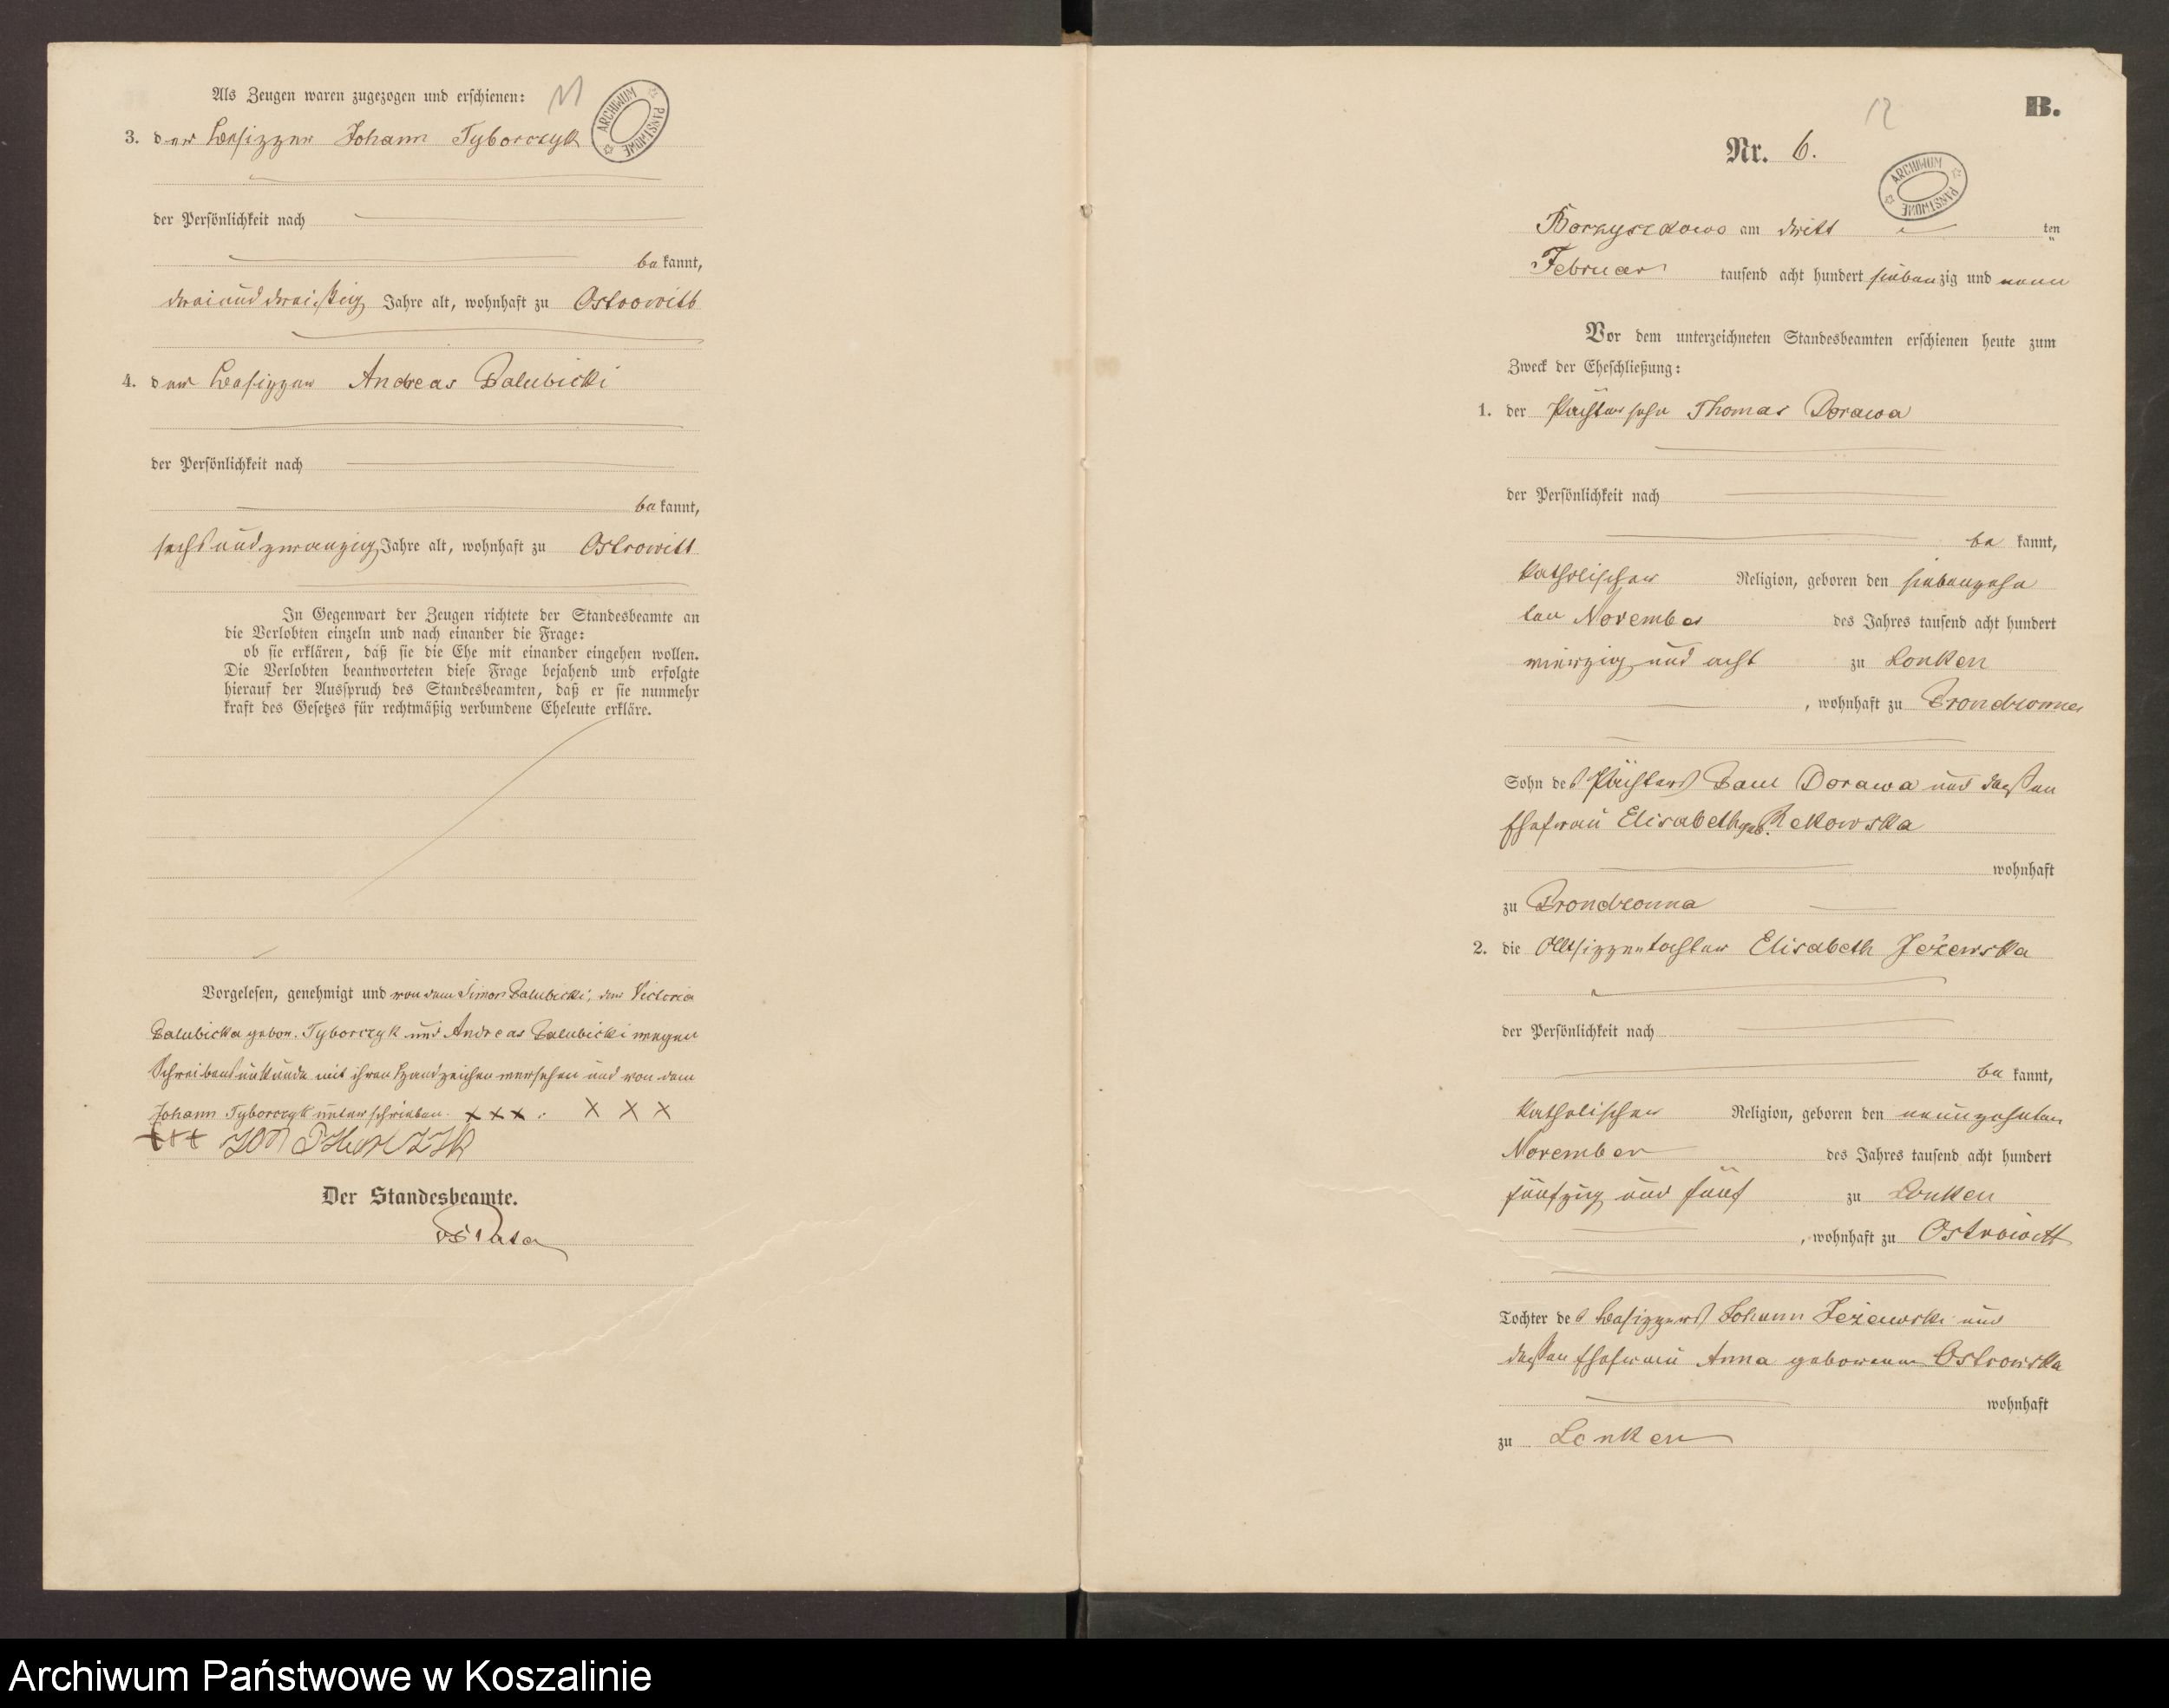 11
Als Zeugen waren zugezogen und erschienen:
ARCHIWUM PAŃSTWOWE
3. der Besitzer Johann Tyborczyk
der Persönlichkeit nach
be kannt,
dreiunddreißig Jahre alt, wohnhaft zu Ostrowitt
4. der Besitzer Andreas Palubicki
der Persönlichkeit nach
be kannt,
sechsundzwanzig Jahre alt, wohnhaft zu Ostrowitt
In Gegenwart der Zeugen richtete der Standesbeamte an
die Verlobten einzeln und nach einander die Frage:
ob sie erklären, daß sie die Ehe mit einander eingehen wollen.
Die Verlobten beantworteten diese Frage bejahend und erfolgte
hierauf der Ausspruch des Standesbeamten, daß er sie nunmehr
kraft des Gesetzes für rechtmäßig verbundene Eheleute erkläre.
Vorgelesen, genehmigt und von dem Simon Palubicki, der Victoria
Palubicka gebor. Tyborczyk und Andreas Palubicki wegen
Schreibensunkunde mit ihren Handzeichen versehen und von dem
Johann Tyborczyk unterschrieben. x x x . x x x
x x x
Der Standesbeamte.
B.
12
Nr. 6.
ARCHIWUM PAŃSTWOWE
Borzyszkowo am dritt ten
Februar tausend acht hundert siebenzig und neun
Vor dem unterzeichneten Standesbeamten erschienen heute zum
Zweck der Eheschließung:
1. der Pächtersohn Thomas Dorawa
der Persönlichkeit nach
be kannt,
katholischer Religion, geboren den siebenzehn
ten November des Jahres tausend acht hundert
vierzig und acht zu Lonken
, wohnhaft zu Prondzonna
Sohn des Pächters Paul Dorawa und dessen
Ehefrau Elisabeth geb. Rekowska
wohnhaft
zu Prondzonna
2. die Altsitzertochter Elisabeth Jeżewska
der Persönlichkeit nach
be kannt,
katholischer Religion, geboren den neunzehnten
November des Jahres tausend acht hundert
fünfzig und fünf zu Lonken
, wohnhaft zu Ostrowitt
Tochter des Besitzers Johann Jeżewski und
dessen Ehefrau Anna geborenen Ostrowska
wohnhaft
zu Lonken
Archiwum Państwowe w Koszalinie